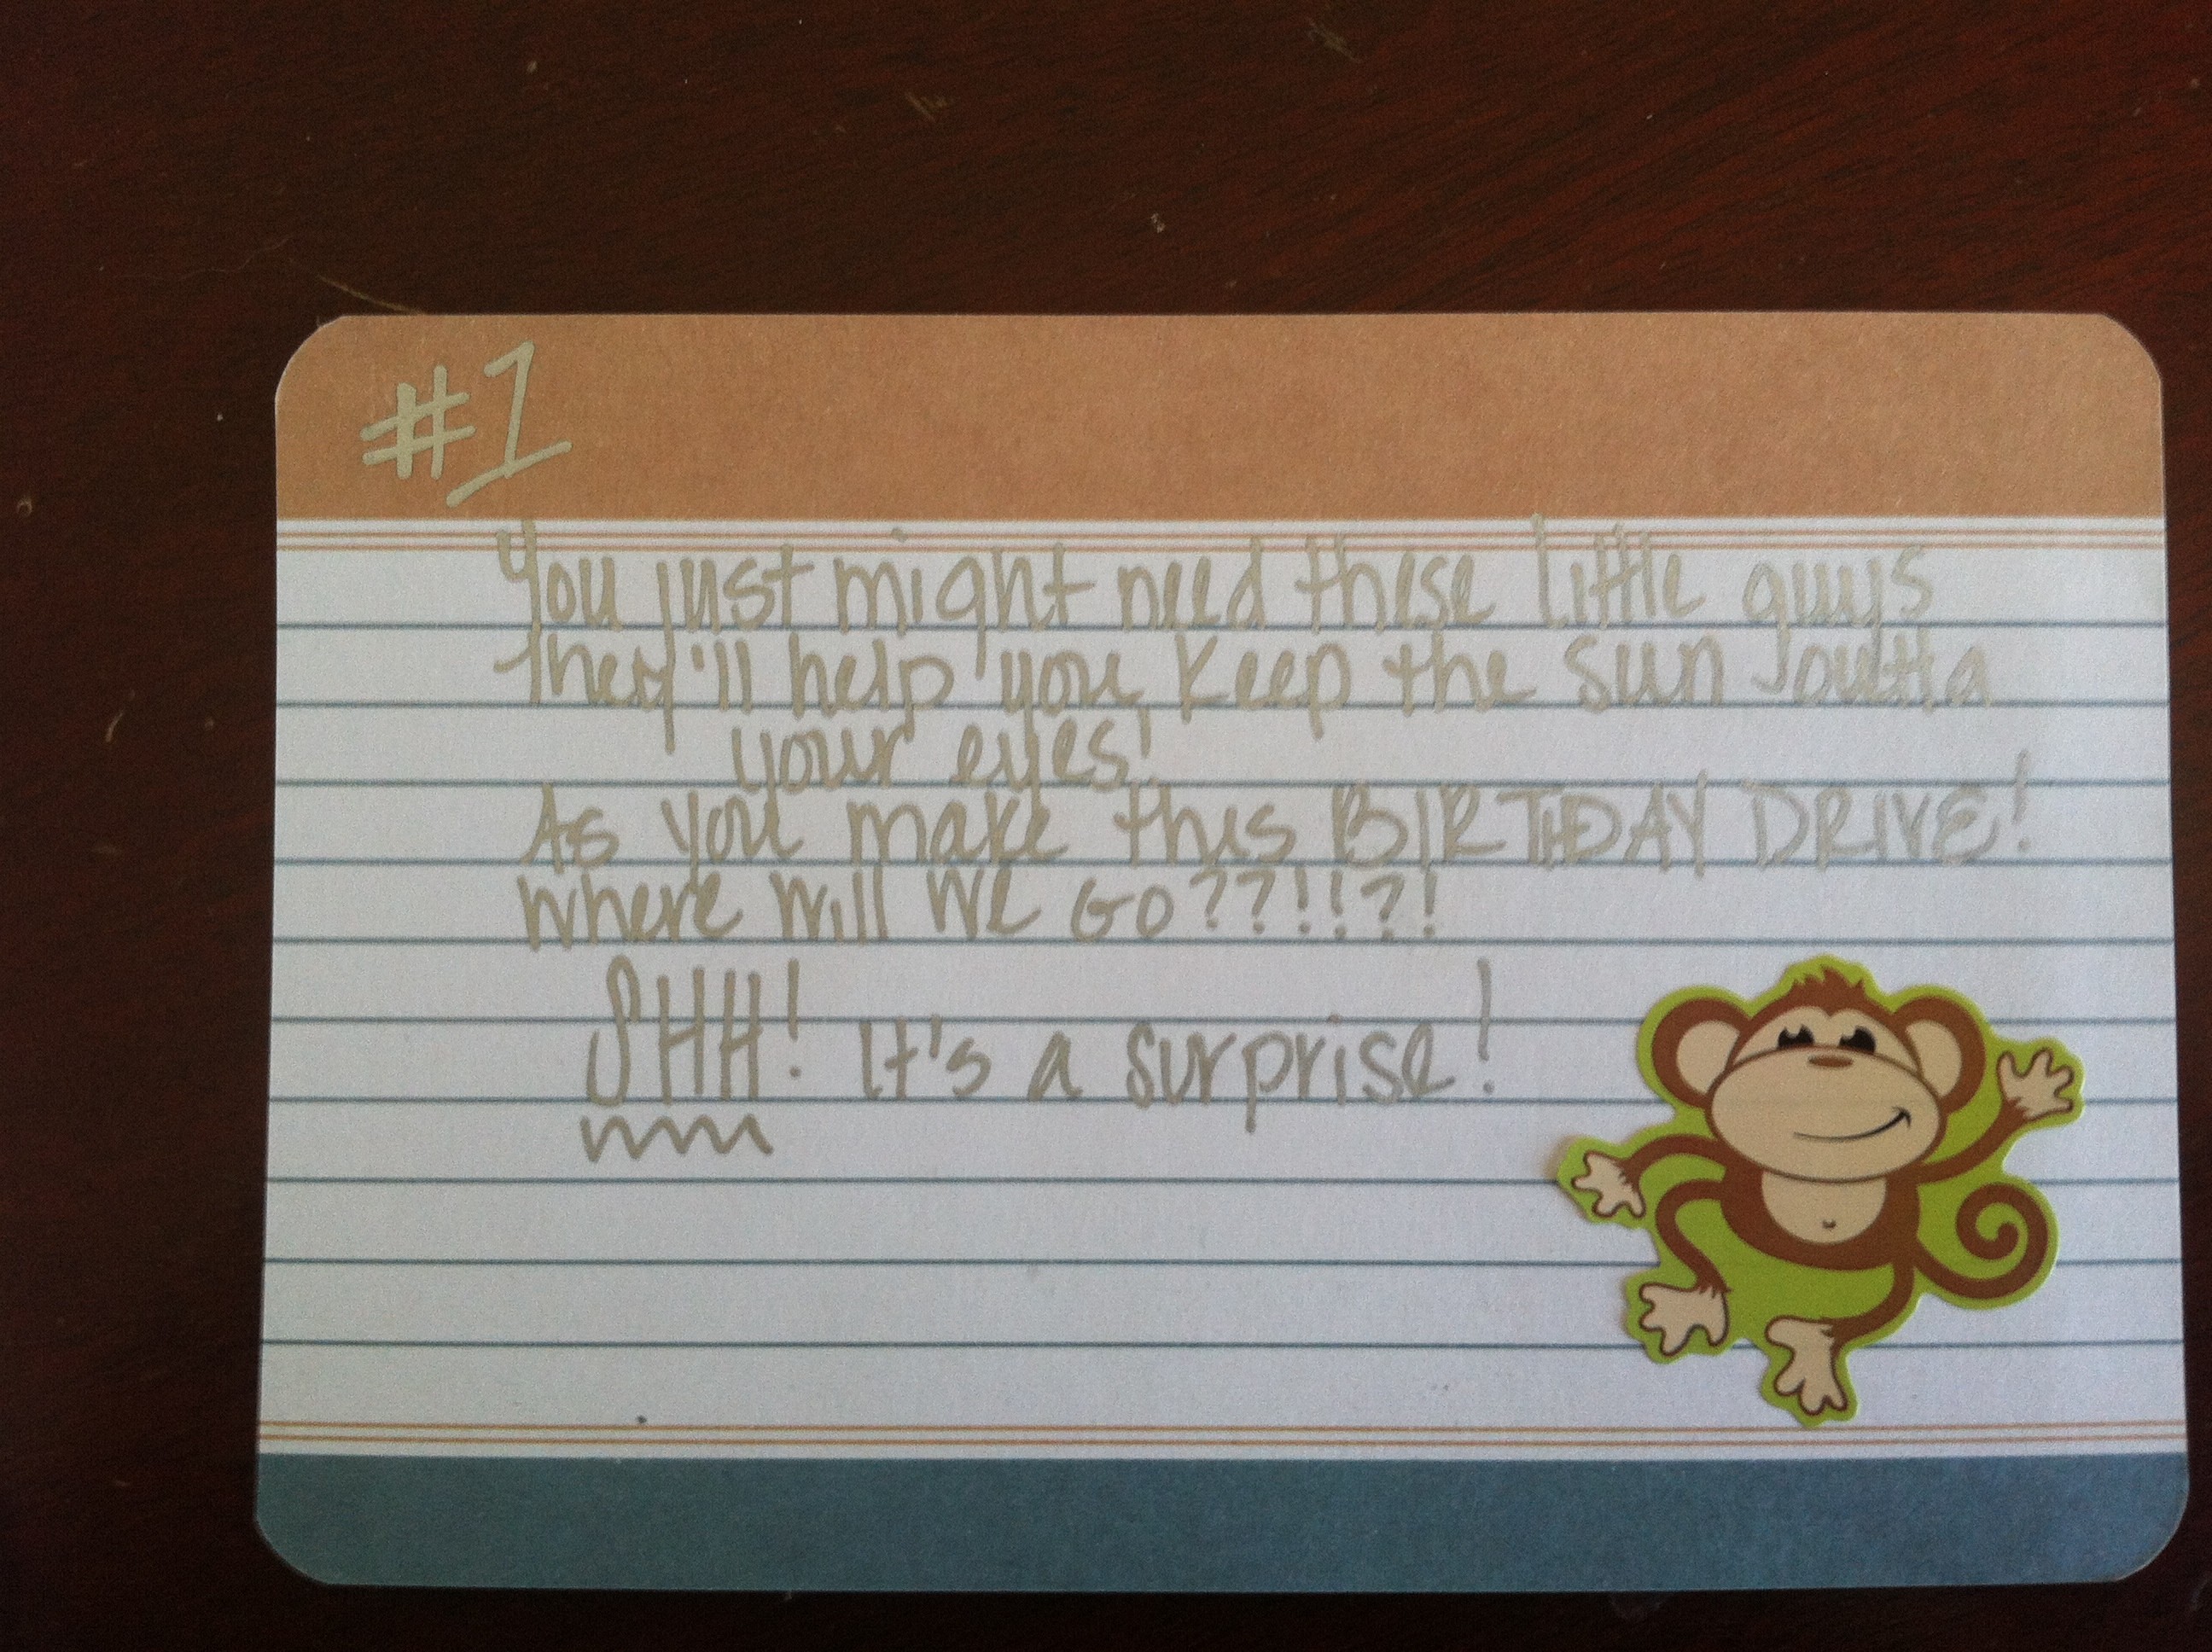 #1
You just might need these little guys
they'll help you keep the sun outta
your eyes!
As you make this BIRTHDAY DRIVE!
where will we Go??!!?!
SHH! It's a surprise!